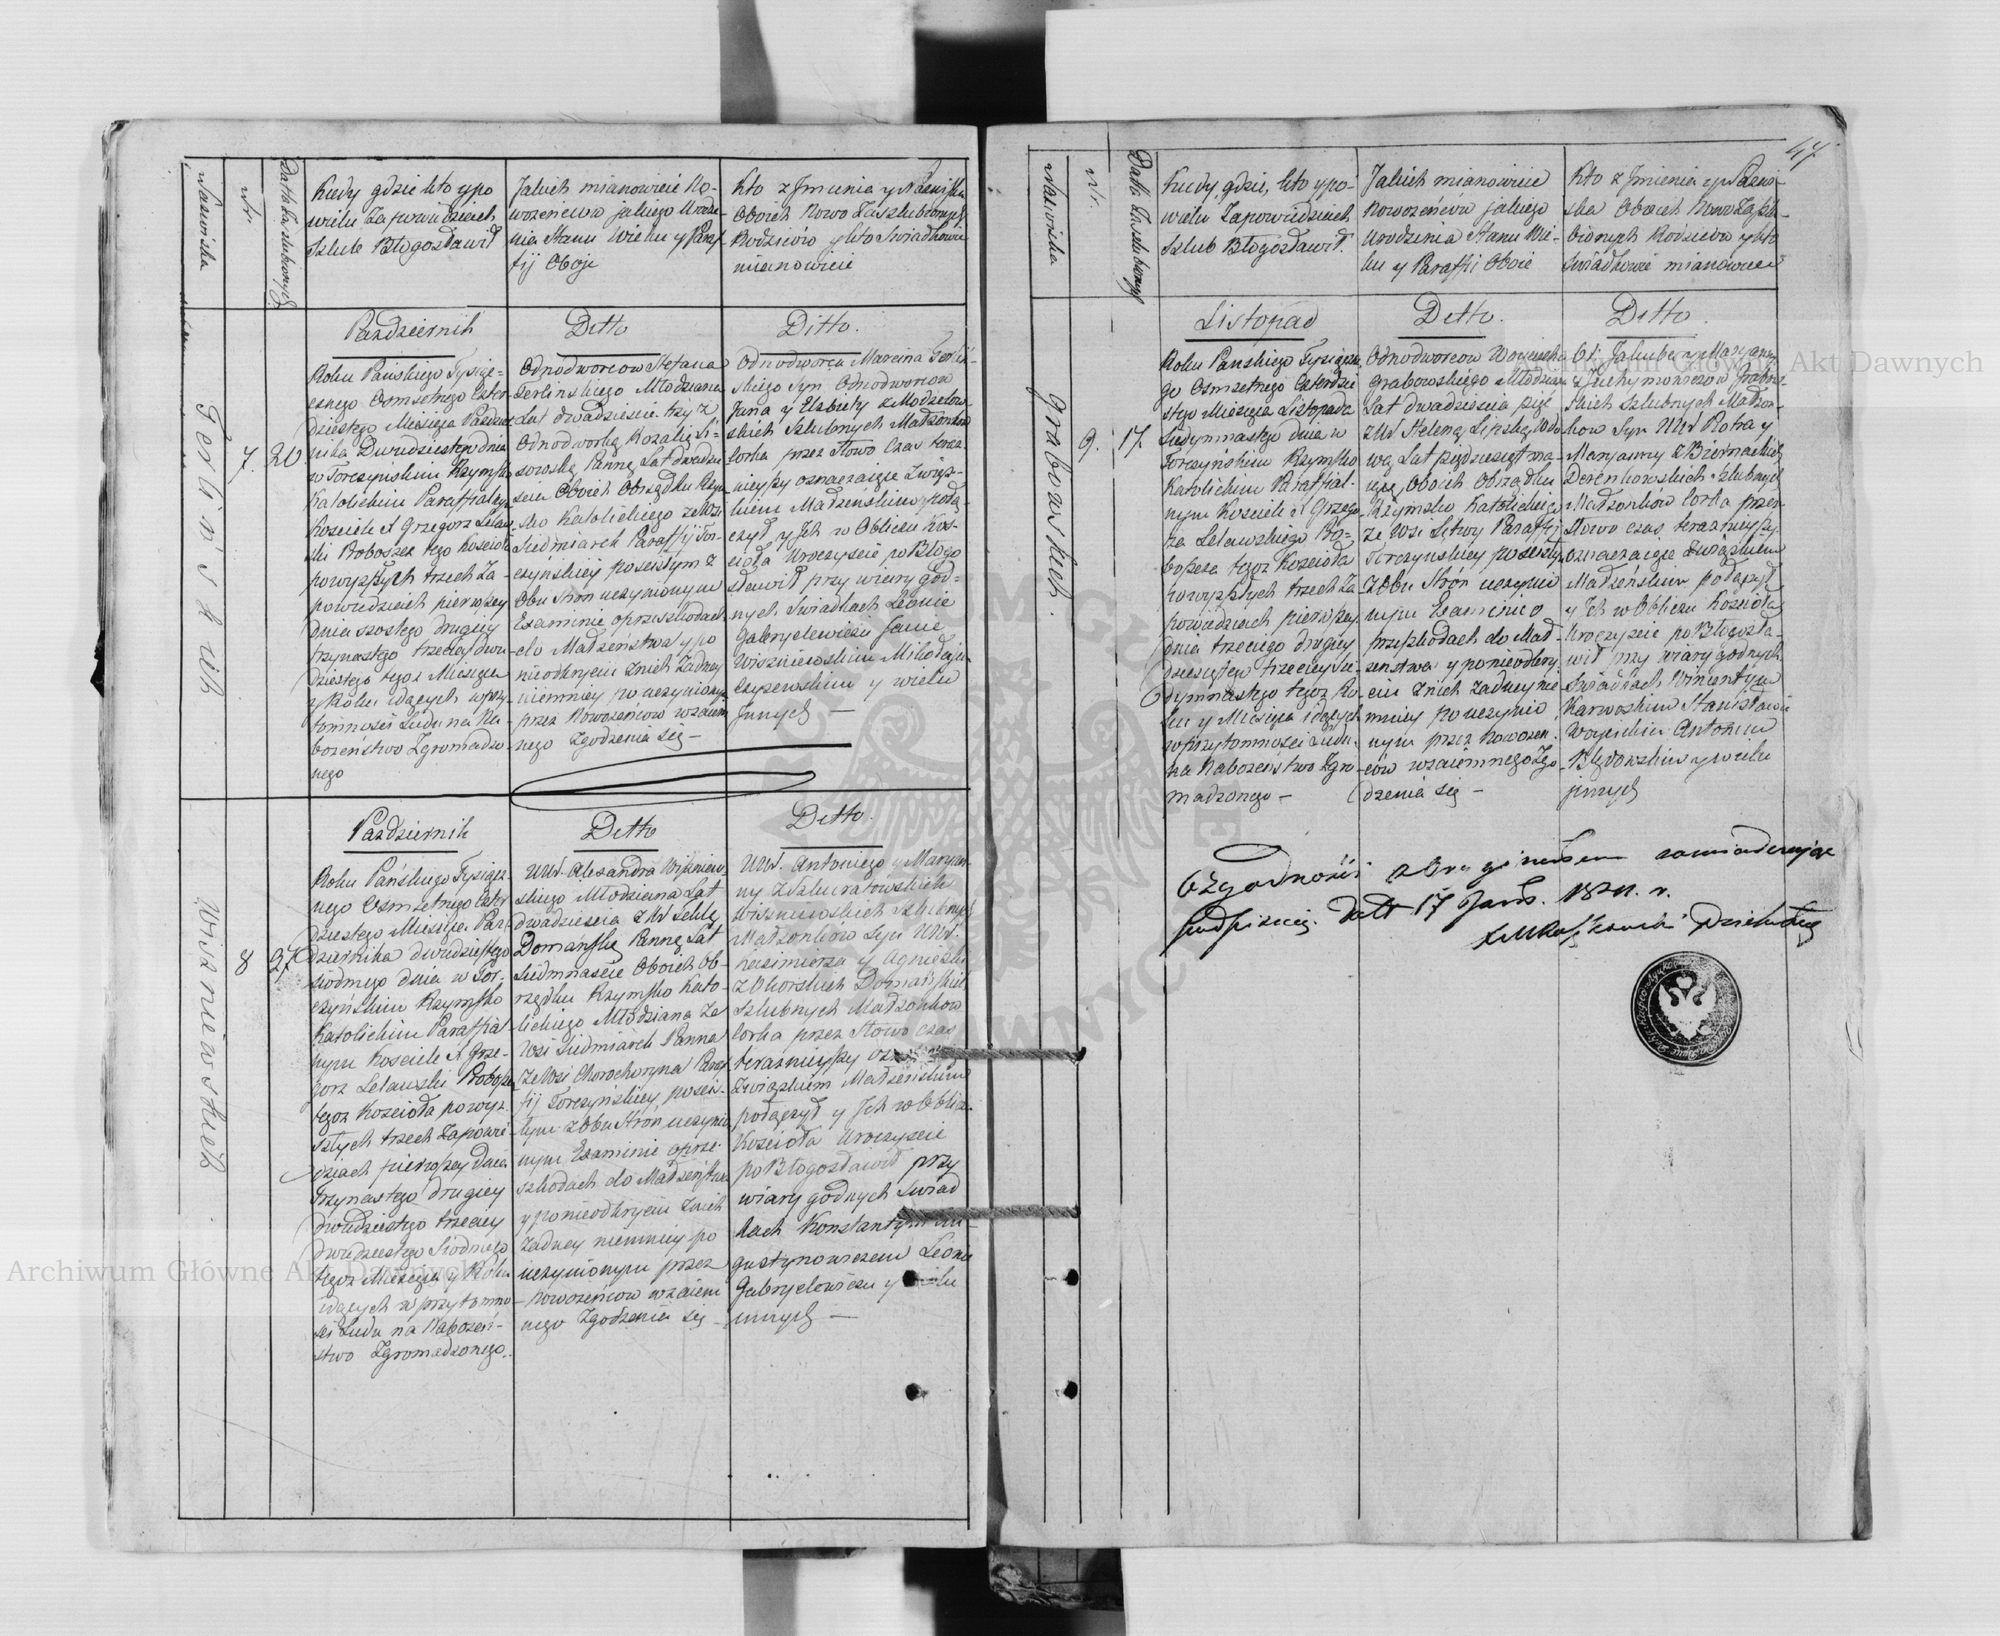 Nazwiska
Nr.
Data Zaszlubionych
Kiedy gdzie kto y po
wielu Zapowiedziach
Szlub Błogosławił
Jakich mianowicie No-
wożeńców jakiego Urodze-
nia Stanu Wieku y Paraf
fij Oboje
Kto z Imienia y Nazwiska
Oboich Nowo Zaszlubionych
Rodziców y kto Swiadkowie
mianowicie
Gerlińskich
7.
20
Pazdziernik
Roku Pańskiego Tysiącz-
cznego Osmsetnego Czter-
dziestego Miesiąca Pazdzier
nika Dwudziestego dnia
w Torczynskim Rzymsko
Katolickim Paraffialnym
Kosciele X Grzegorz Lelaw-
ski Proboszcz tego Kościoła
po wyszłych trzech Za-
powiedziach pierwszey
dnia szostego drugiey
trzynastego trzeciey dwu-
dziestego tegoz Miesiąca
y Roku idących w przy-
tomności Ludu na Na-
bożeństwo Zgromadzo-
nego
Ditto
Odnodworcow Stefana
Gerlinskiego Młodziana
Lat dwadziescia trzy z
Odnodworką Rozalią Li-
sowską Panną Lat dwadzie
scia Oboich Obrządku Rzym
sko Katolickiego ze Wsi
Siedmiarek Paraffij Tor-
czynskiey po scisłym z
Obu Stron uczynionym
Examinie o przeszkodach
do Małżeństwa y po
nieodkryciu z nich Żadney
niemniey po uczynionym
przez Nowożeńcow wzaiem
nego Zgodzenia się —
Ditto.
Odnodworca Marcina Gerliń-
skiego Syn Odnodworcow
Jana y Elzbiety z Modzelew-
skich Szlubnych Małżonkow
Corka przez Słowo Czas teraz-
nieyszy oznaczaiące Zwiąs-
kiem Małżeńskim połą-
czył y Ich w Obliczu Koś-
cioła Uroczyscie po Błogo
sławił przy wiary god-
nych Swiadkach Leonie
Gabrylewiczu Janie
Wiszniewskim Mikołaju
Czyzewskim y wielu
Innych —
Wiszniewskich.
8
27
Pazdziernik
Roku Pańskiego Tysiącz
nego Osmsetnego Czter
dziestego Miesiąca Paz-
dziernika dwudziestego
siodmego dnia w Tor-
czyńskim Rzymsko
Katolickim Paraffial
nym Kosciele X Grze-
gorz Lelawski Proboszcz
tegoz Kościoła po wy-
szłych trzech Zapowie-
dziach pierwszey dnia
trzynastego drugiey
dwudziestego trzeciey
dwudziestego Siodmego
tegoz Miesiąca y Roku
idących w przytomno
ści Ludu na Nabożeń-
stwo Zgromadzonego.
Ditto
UW. Alexandra Wiszniew
skiego Młodziana Lat
dwadziescia z UW Teklą
Domańską Panną Lat
Siedmnaście Oboich Ob-
rządku Rzymsko Kato-
lickiego Młodziana ze
Wsi Siedmiarek Panna
ze Wsi Chorochoryna Paraf
fij Torczyńskiey po scis-
łym z Obu Stron uczynio
nym Examinie o prze-
szkodach do Małżeństwa
y po nieodkryciu z nich
Żadney niemniey po
uczynionym przez
Nowożeńcow wzaiem
nego Zgodzenia się —
Ditto.
UUW. Antoniego y Maryan-
ny z
Wiszniewskich Szlubnych
Małżonkow Syn UUW.
Kazimierza y Agnieszki
z Domańskich
Szlubnych Małżonkow
Corka przez Słowo czas
teraznieyszy
Związkiem Małżeńskim
połączył y Ich w Obliczu
Kościoła Uroczyscie
po Błogosławił przy
wiary godnych Swiad
kach Konstantym Au-
gustynowiczem Leonie
Gabrylewiczu y wielu
innych —
47.
Nazwiska
Nr.
Data Zaszlubionych
Kiedy, gdzie, kto y po-
wielu Zapowiedziach
Szlub Błogosławił.
Jakich mianowicie
Nowożeńców jakiego
Urodzenia Stanu Wie-
ku y Paraffij Oboie
Kto z Imienia y Nazwi-
ska Oboich Nowo Zaszlu-
bionych Rodziców y kto
Swiadkowie mianowicie
Grabowskich.
9.
17.
Listopad
Roku Pańskiego Tysiączne
go Osmsetnego Czterdzie
stego Miesiąca Listopada
Siedymnastego dnia w
Torczyńskim Rzymsko
Katolickim Paraffial-
nym Kosciele X Grzego-
rza Lelawskiego Pro-
boszcza tegoz Kościoła
po wyszłych trzech Za
powiedziach pierwszey
dnia trzeciego drugiey
dziesiątego trzeciey sie-
dymnastego tegoz Ro-
ku y Miesiąca idących
w przytomności Ludu
na Nabożeństwo Zgro
madzonego —
Ditto.
Odnodworcow Woyciecha
Grabowskiego Młodziana
Lat dwadziescia pięć
z UW Heleną Lipską Wdo
wą Lat pięćdziesiąt ma-
iącą, Oboich Obrządku
Rzymsko Katolickiego
ze Wsi Sętwy Paraffij
Torczynskiey po scisłym
z Obu Stron uczynio
nym Examinie o
przeszkodach do Mał
żeństwa y po nieodkry
ciu z nich Żadney nie
mniey po uczynio
nym przez Nowożeń-
cow wzaiemnego Zgo
dzenia się —
Ditto.
Od: Jakuba y Maryanny
z Juchymowiczow Grabow
skich Szlubnych Małżon-
kow Syn UUW Piotra y
Maryanny z Biernackich
Derenkowskich Szlubnych
Małżonkow Corka przez
Słowo czas teraznieyszy
oznaczaiące Związkiem
Małżeńskim połączył
y Ich w Obliczu Kościoła
Uroczyscie po Błogosła-
wił przy wiary godnych
Swiadkach Wincentym
Karwoskim Stanisławie
Woycickim Antonim
Błędowskim y wielu
innych
O Zgodności z Oryginałem zaswiadczaiąc
podpisuię. Datt 17 Janr. 1841. r.
Dziekan